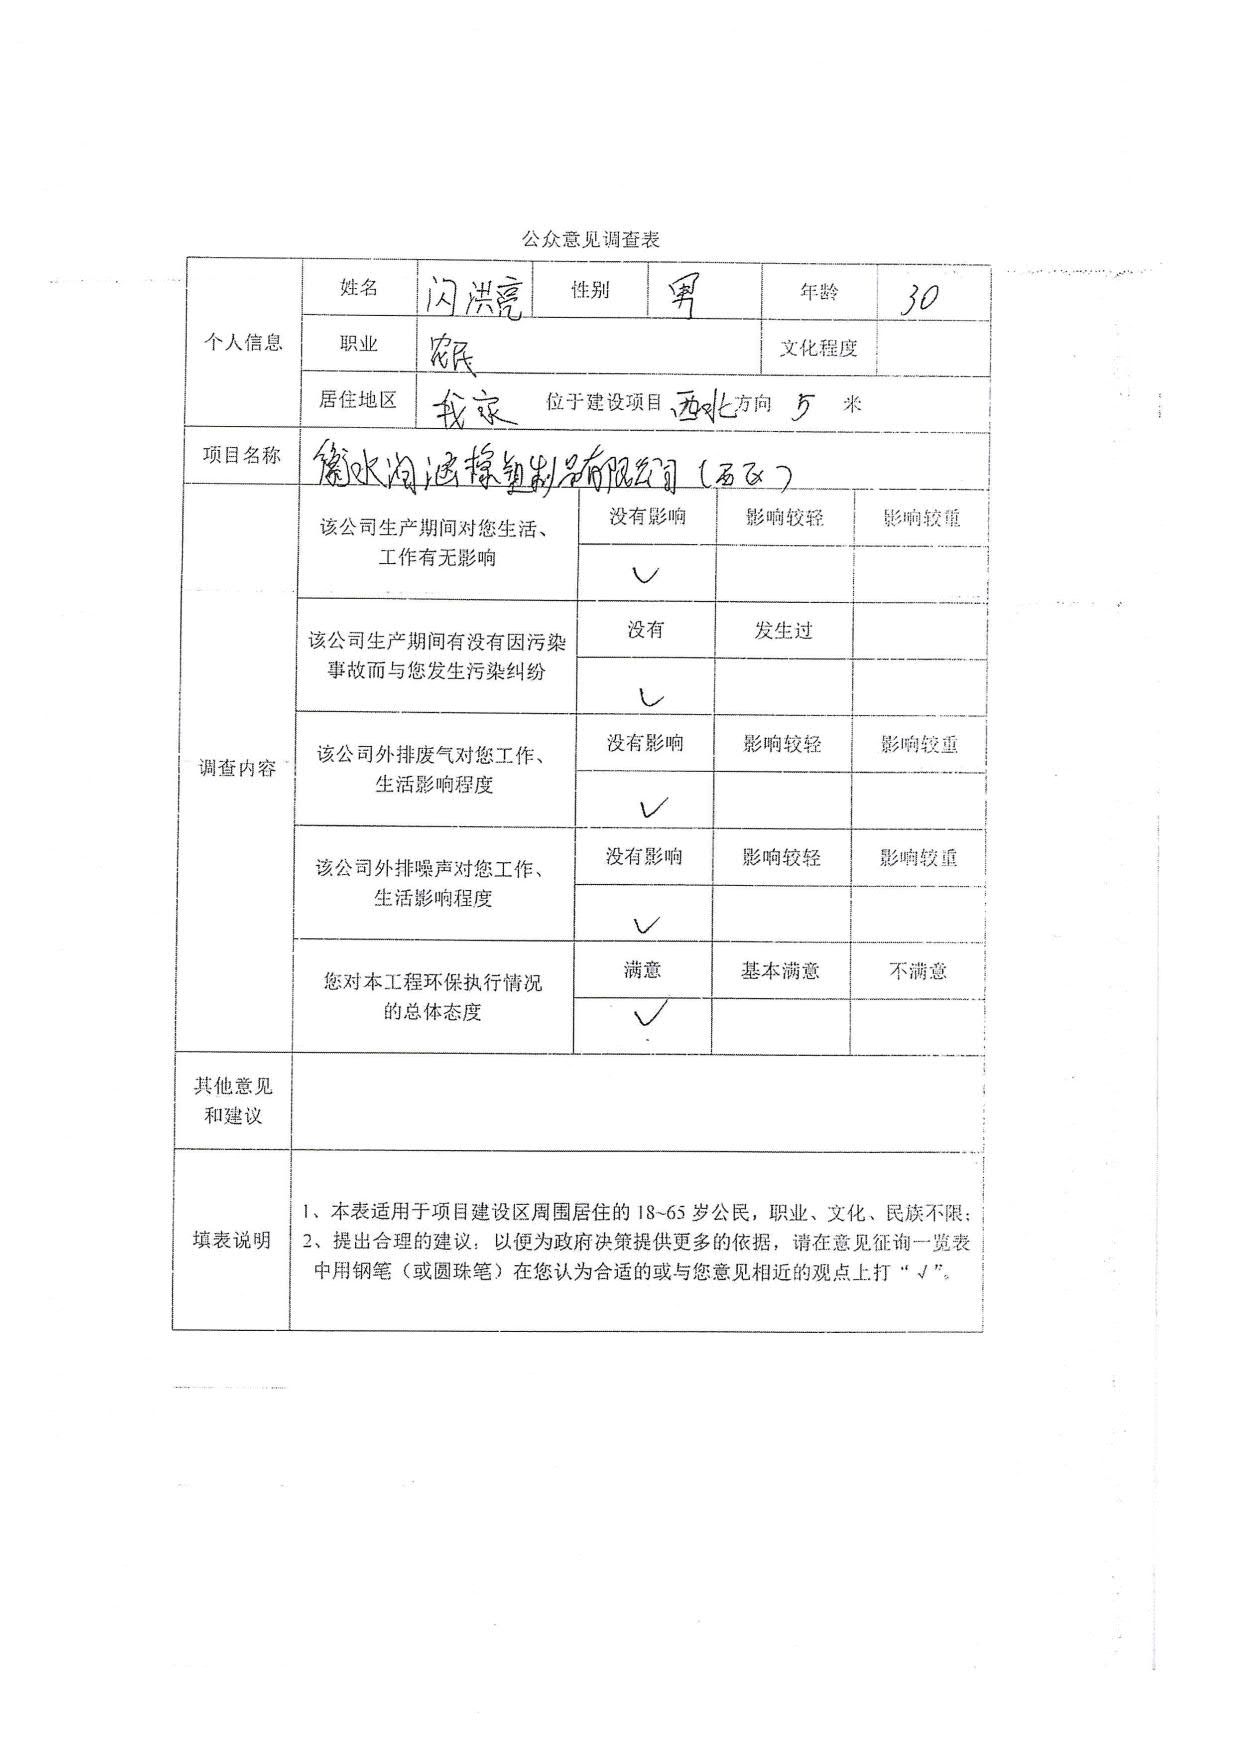 公众意见调查表
个人信息
姓名 闪洪亮 性别 男 年龄 30
职业 农民 文化程度
居住地区 我家 位于建设项目 西北 方向 5 米
项目名称 衡水洵涵橡塑制品有限公司(西区)
调查内容
该公司生产期间对您生活、
工作有无影响
没有影响 影响较轻 影响较重
✓
该公司生产期间有没有因污染
事故而与您发生污染纠纷
没有 发生过
✓
该公司外排废气对您工作、
生活影响程度
没有影响 影响较轻 影响较重
✓
该公司外排噪声对您工作、
生活影响程度
没有影响 影响较轻 影响较重
✓
您对本工程环保执行情况
的总体态度
满意 基本满意 不满意
✓
其他意见
和建议
填表说明
1、本表适用于项目建设区周围居住的 18~65 岁公民，职业、文化、民族不限；
2、提出合理的建议，以便为政府决策提供更多的依据，请在意见征询一览表
中用钢笔（或圆珠笔）在您认为合适的或与您意见相近的观点上打“√”。